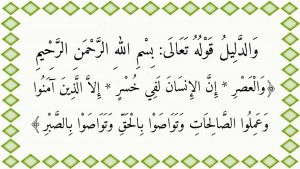 وَالدَّلِيلُ قَوْلُهُ تَعَالَى: بِسْمِ اللهِ الرَّحْمَنِ الرَّحِيمِ
﴿وَالْعَصْرِ * إِنَّ الْإِنْسَانَ لَفِي خُسْرٍ * إِلاَّ الَّذِينَ آمَنُوا
وَعَمِلُوا الصَّالِحَاتِ وَتَوَاصَوْا بِالْحَقِّ وَتَوَاصَوْا بِالصَّبْرِ﴾